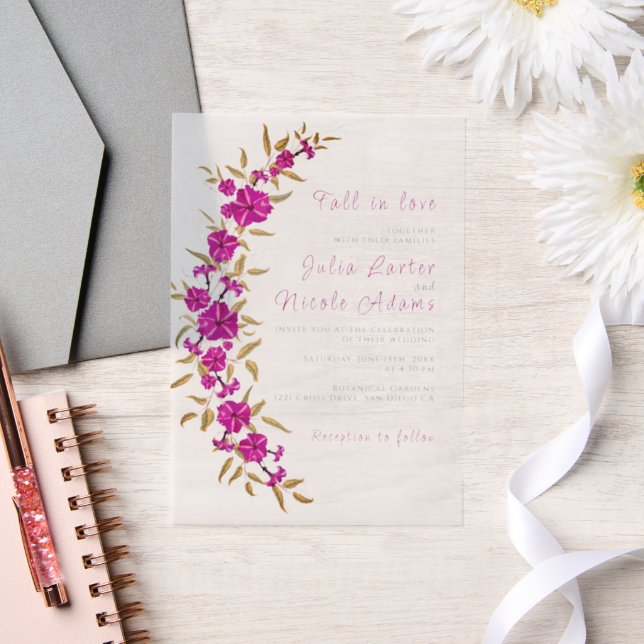 Fall in love
Together
with their families
Julia Larter
and
Nicole Adams
Invite you at the celebration
of their wedding
Saturday June 15th, 20XX
at 4:30 pm
Botanical Gardens
1221 Cross Drive, San Diego CA
Reception to follow